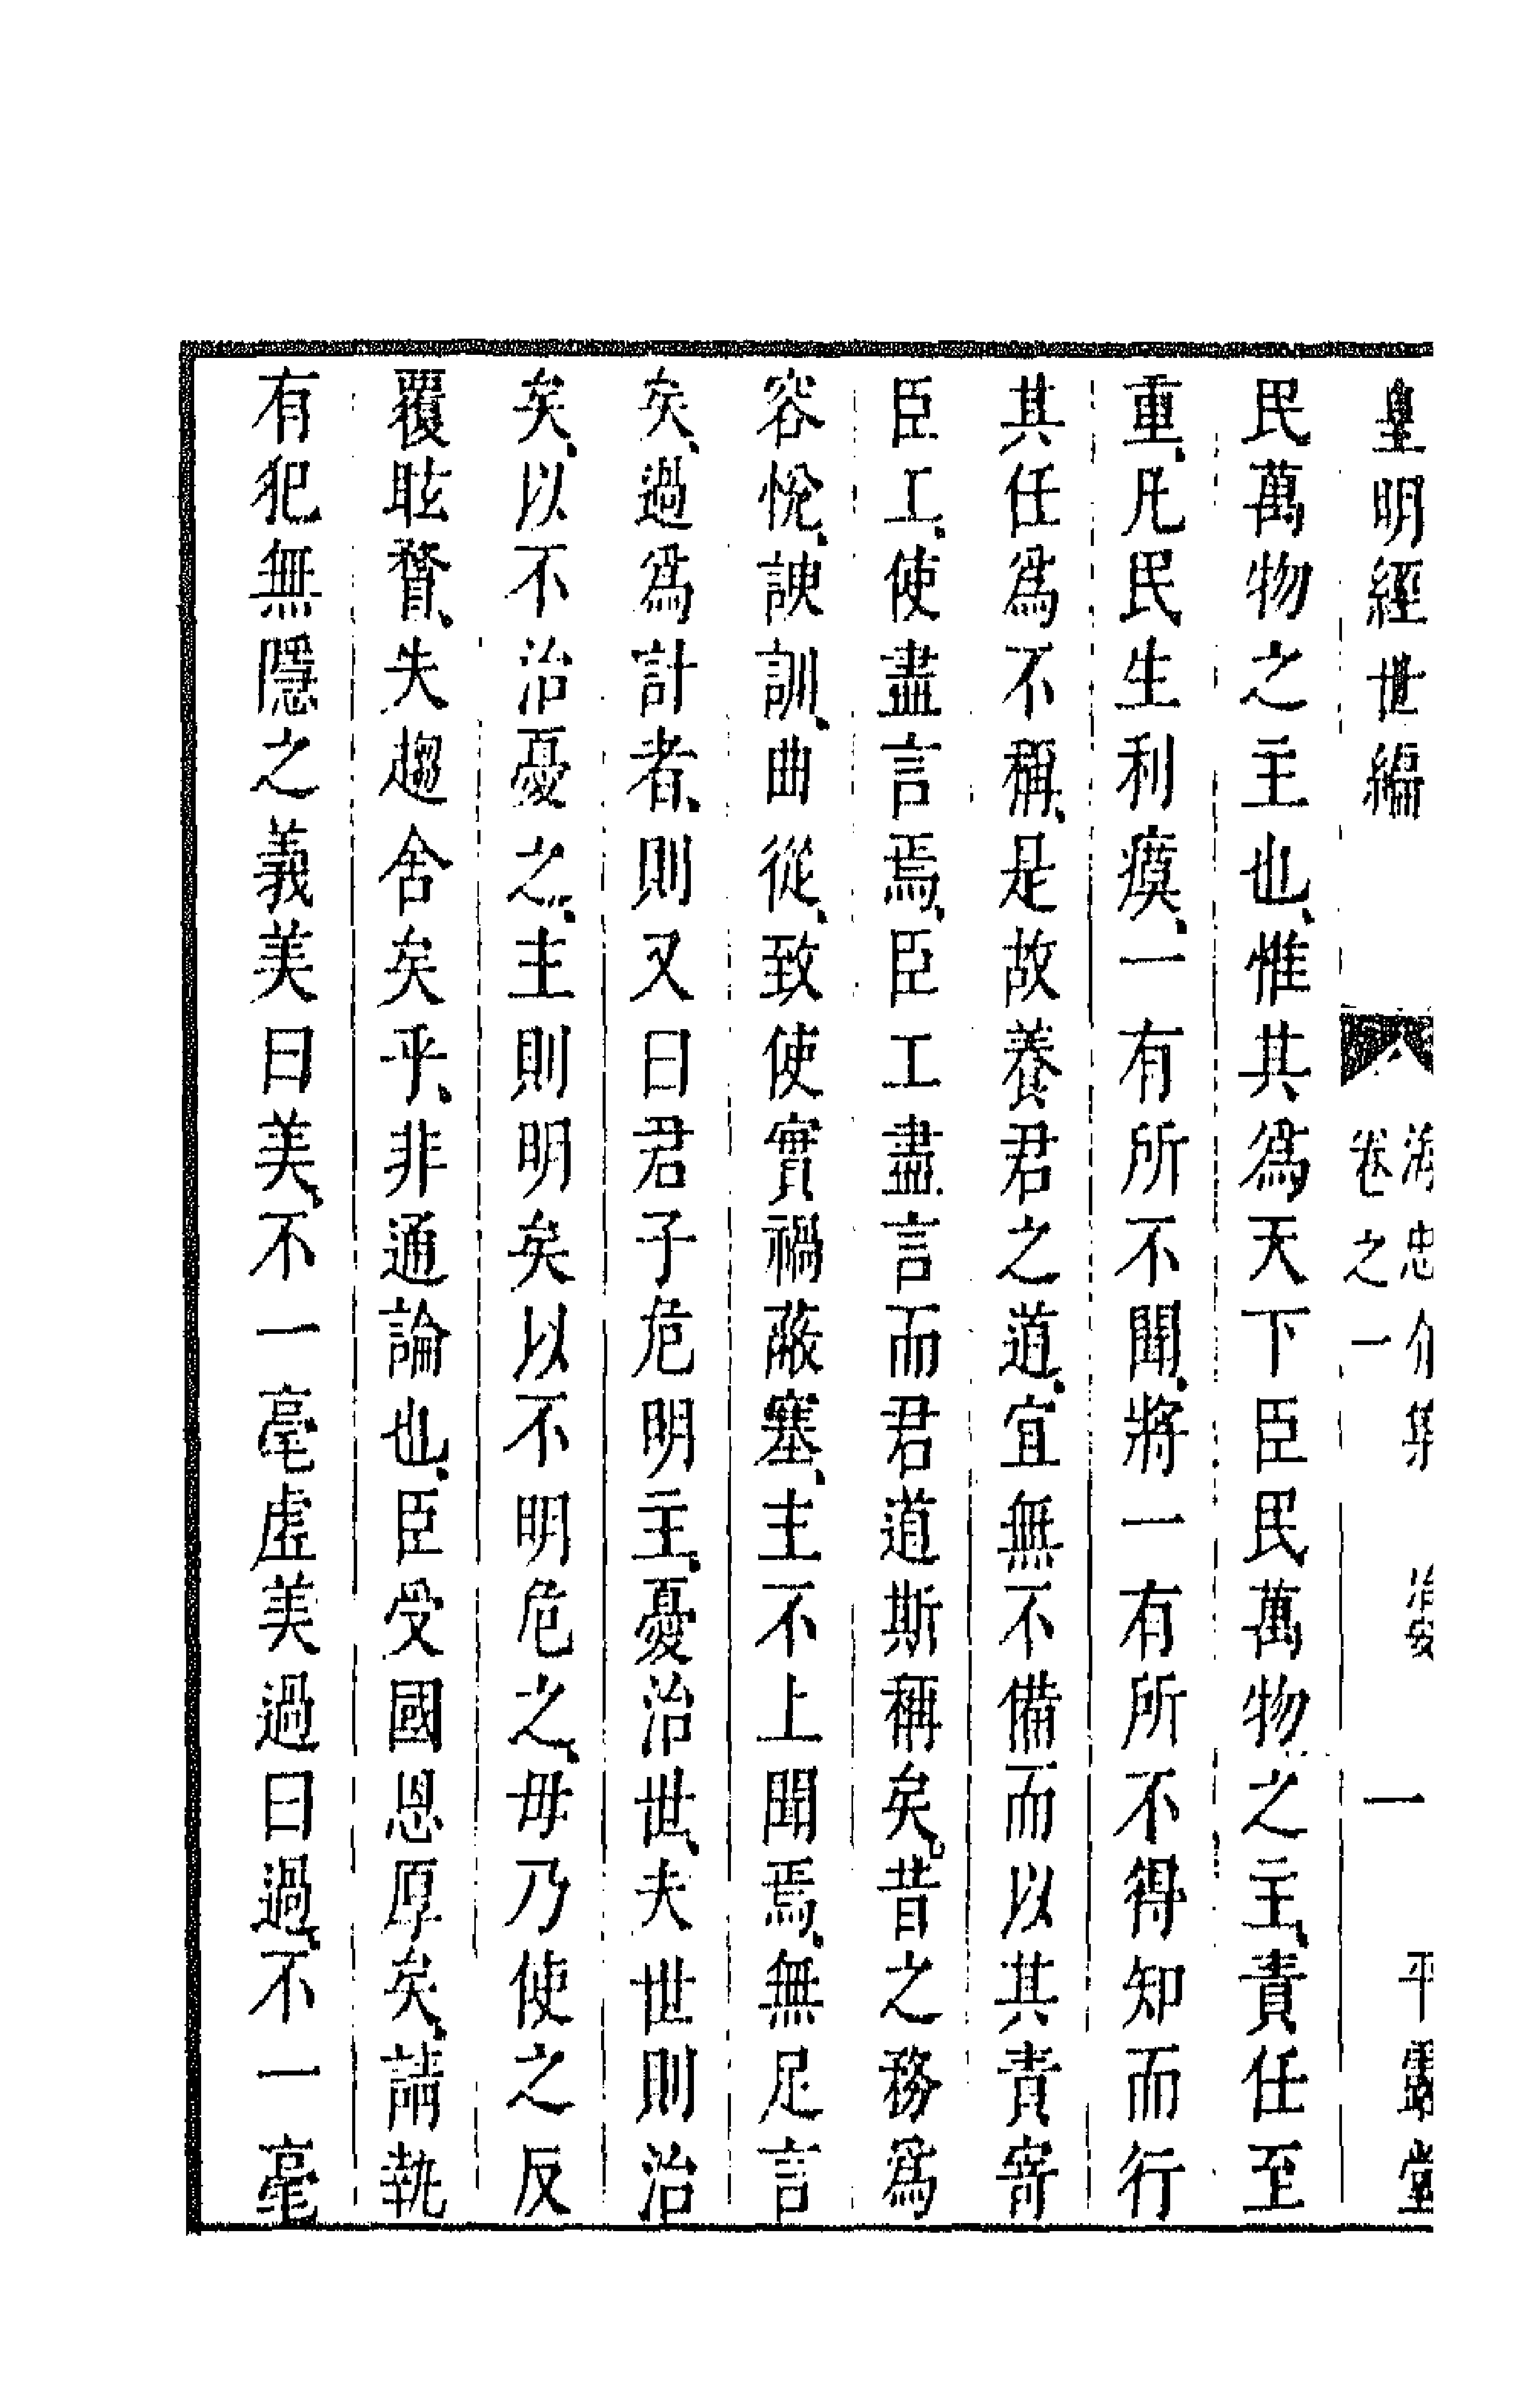 皇明經世編
海忠介集
卷之一
治安
一
平露堂
民萬物之主也惟其爲天下臣民萬物之主責任至
重凡民生利瘼一有所不聞將一有所不得知而行
其任爲不稱是故養君之道宜無不備而以其責寄
臣工使盡言焉臣工盡言而君道斯稱矣昔之務爲
容悅諛訓曲從致使實禍蔽塞主不上聞焉無足言
矣過爲計者則又曰君子危明主憂治世夫世則治
矣以不治憂之主則明矣以不明危之毋乃使之反
覆眩瞀失趨舍矣乎非通論也臣受國恩厚矣請執
有犯無隱之義美曰美不一毫虛美過曰過不一毫